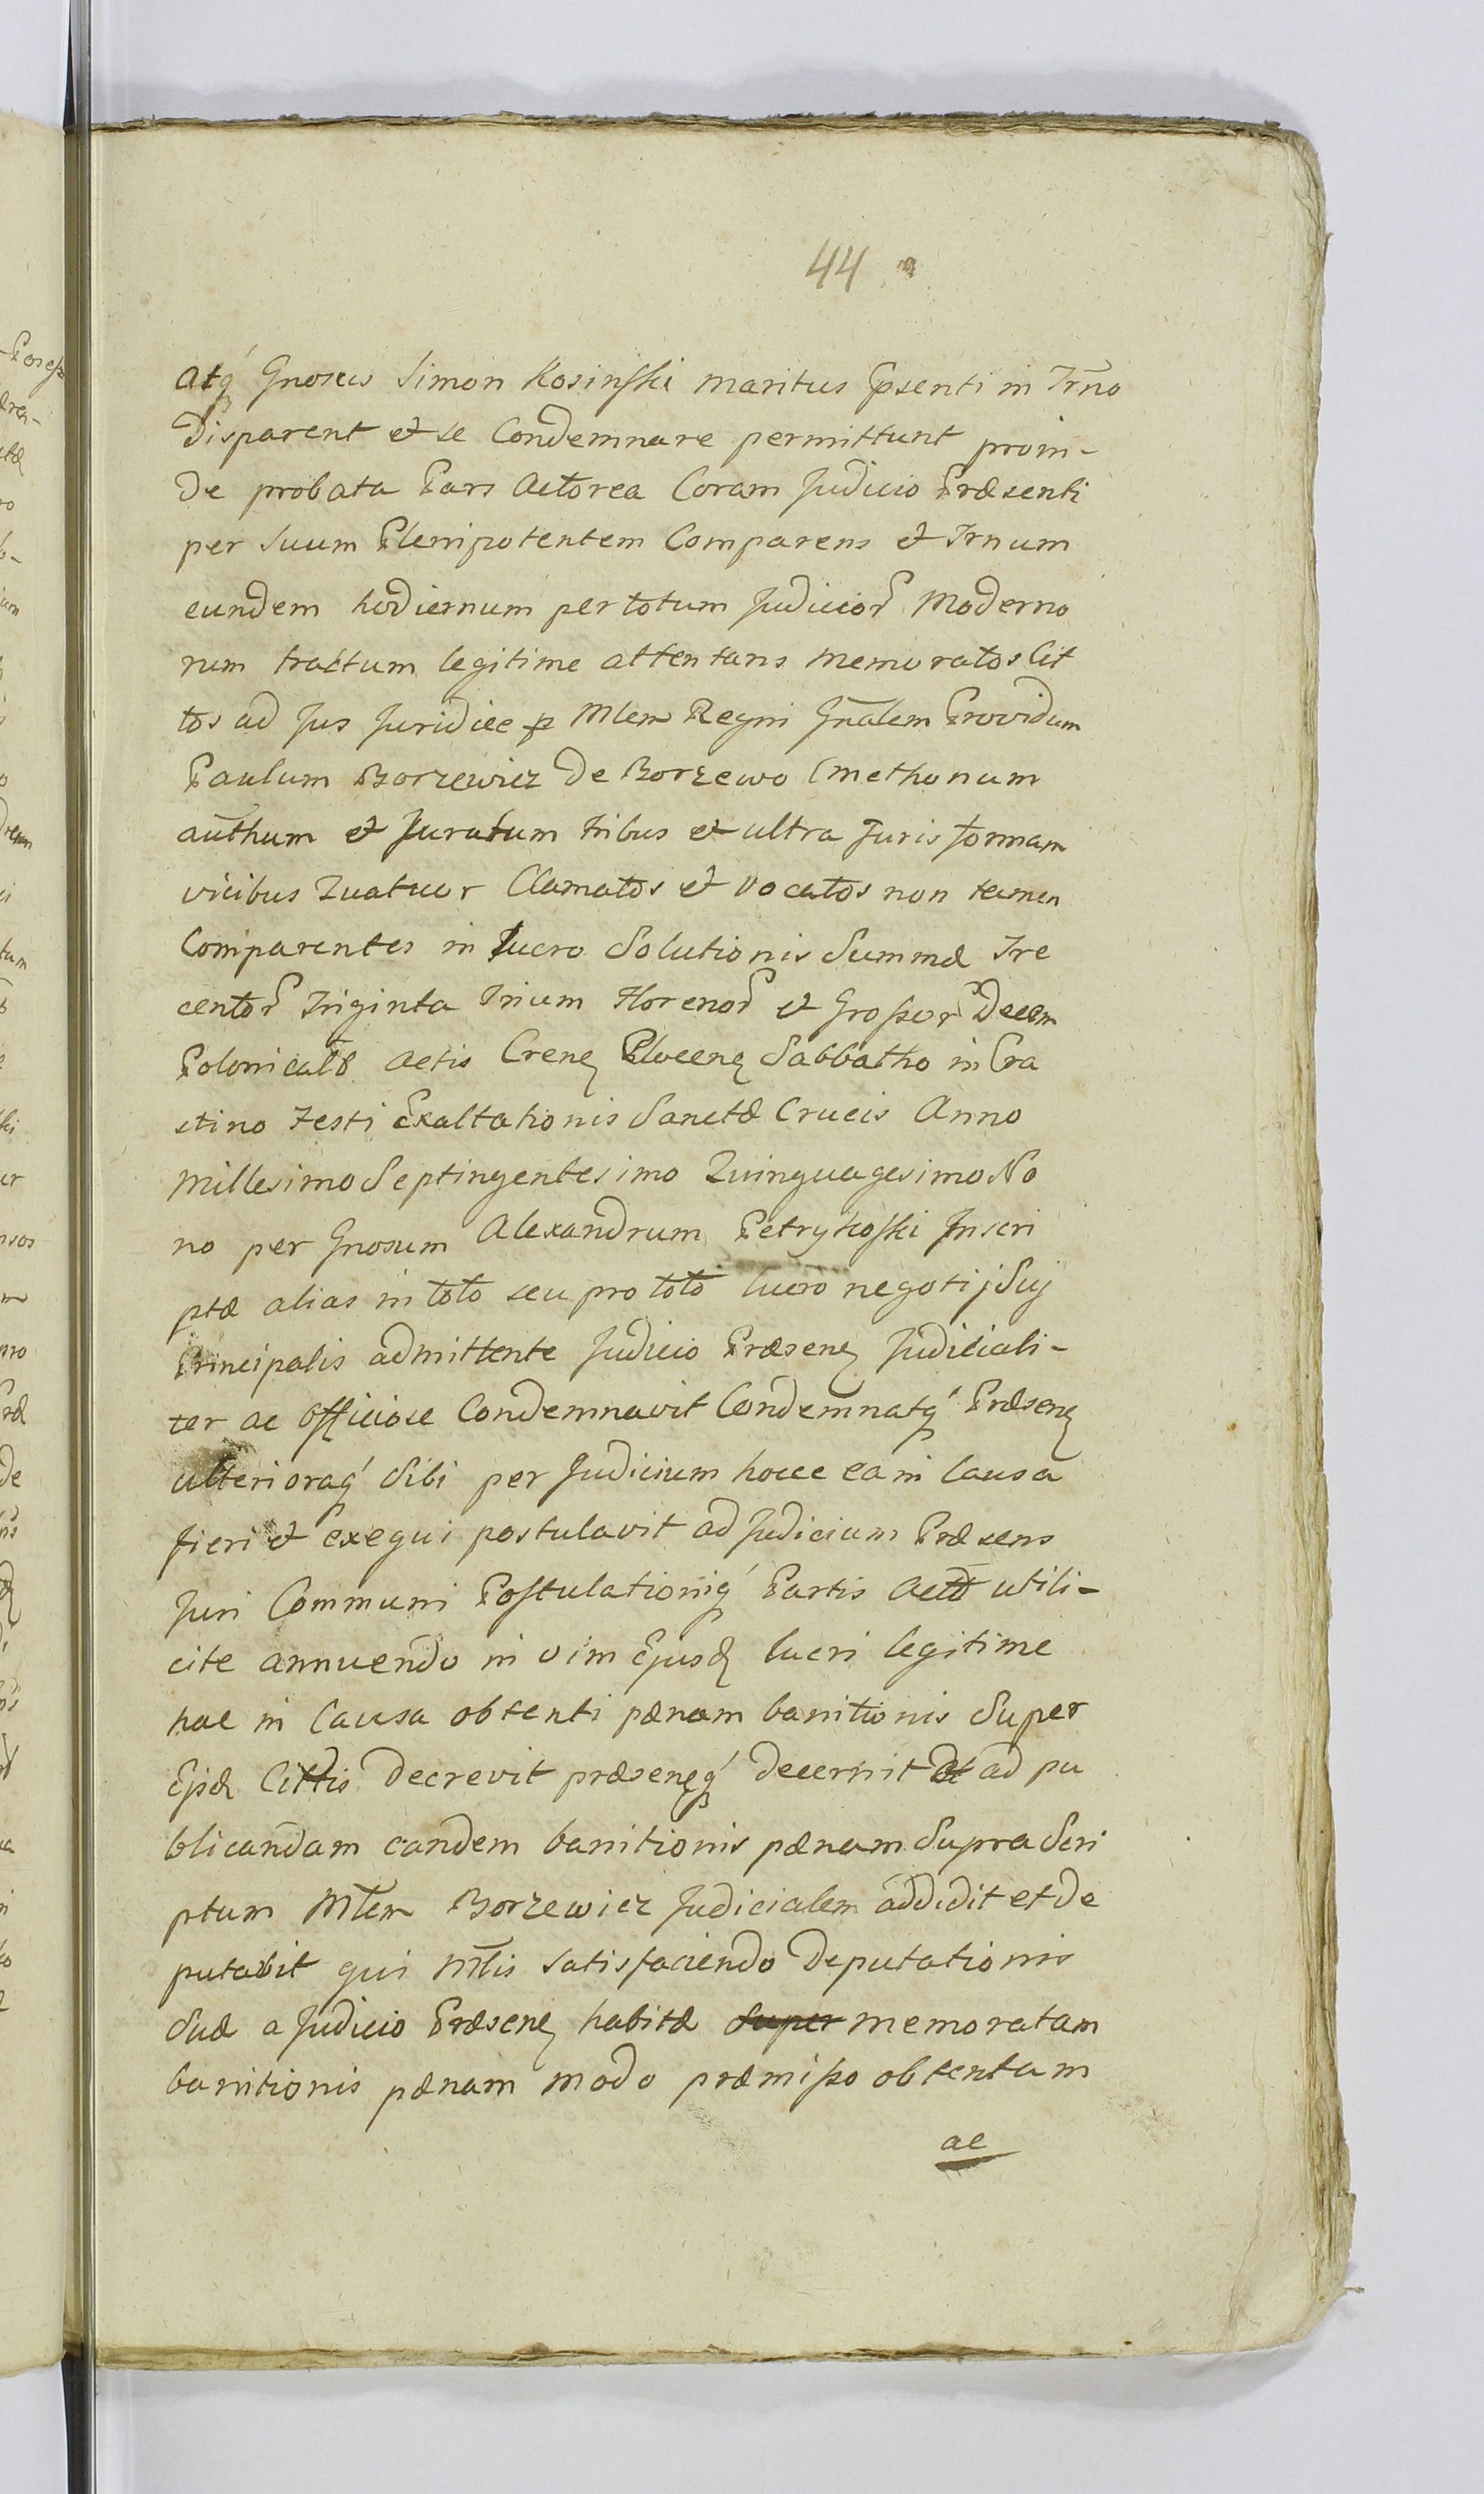 44
atq́ Gnosus Simon Kosinski maritus Epsenti in Trno
Disparent et se Condemnare permittunt proin-
de probata Pars Actorea Coram Judicio Præsenti
per Suum Plenipotentem Comparens et Trnum
eundem hodiernum per totum Judicior Moderno
rum tractum legitime attentans memoratos Cit
tos ad Jus Juridice p Mlem Regni Gnalem Providum
Paulum Borzewicz De Borzewo Cmethonum
authum et Juratum tribus et ultra Juris formam
vicibus Quatuor Clamatos et vocatos non tamen
Comparentes in lucro Solutionis Summæ Tre
centor Triginta Trium Florenor et Grossor Decem
Polonical Actis Cren Plocen Sabbatho in Cra
stino Festi Exaltationis Sanctæ Crucis Anno
Millesimo Septingentesimo Quinquagesimo No
no per Gnosum Alexandrum Petrykoski Inscri
ptæ alias in toto seu pro toto lucro negotij Suj
Principalis admittente Judicio Præsen Judiciali-
ter ac Officiose Condemnavit Condemnatq́ Præsen
ulterioraq́ Sibi per Judicium hocce ea in Causa
fieri et exequi postulavit ad Judicium Præsens
Juri Communi Postulationiq́ Partis Act utili-
cite annuendo in vim Ejusd lucri legitime
hac in Causa obtenti pænam banitionis Super
Ejsd Cittis decrevit præsenq́ decernit et ad pu
blicandam eandem banitionis pænam Supra Scri
ptum Mlem Borzewicz Judicialem addidit et De
putabit qui Mlis satisfaciendo Deputationis
Suæ a Judicio Præsen habitæ super memoratam
banitionis pænam modo præmisso obtentam
ac